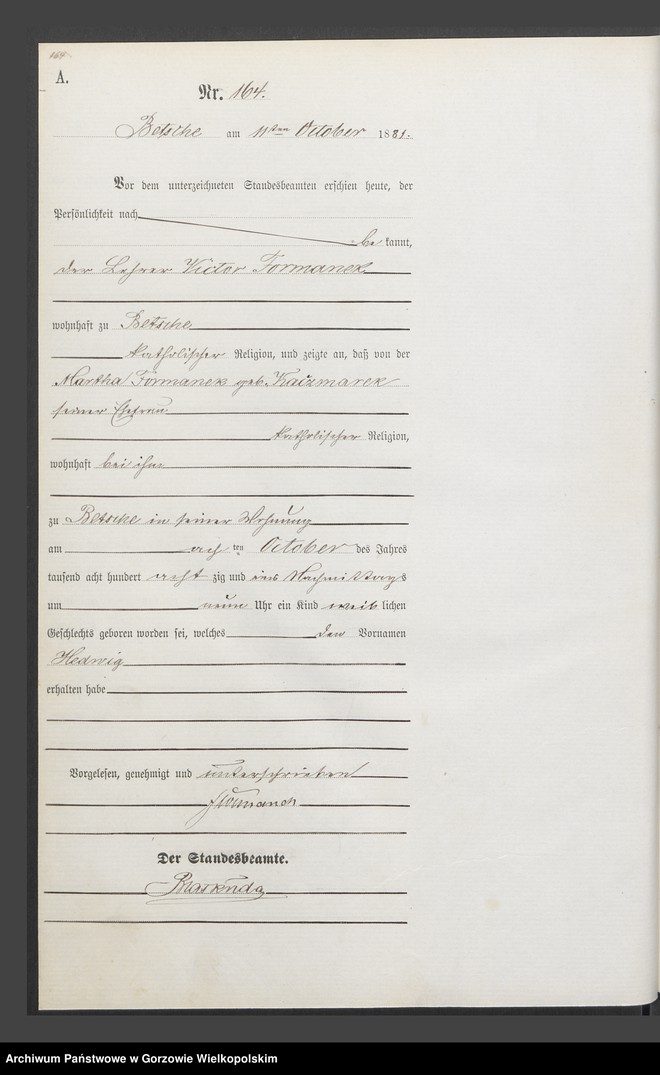 164.
A.
Nr. 164.
Betsche am 11ten October 1881.
Vor dem unterzeichneten Standesbeamten erschien heute, der
Persönlichkeit nach
be kannt,
der Lehrer Victor Formanek
wohnhaft zu Betsche
katholischer Religion, und zeigte an, daß von der
Martha Formanek geb. Kaczmarek
seiner Ehefrau
katholischer Religion,
wohnhaft bei ihm
zu Betsche in seiner Wohnung
am ach ten October des Jahres
tausend acht hundert acht zig und eins Nachmittags
um neun Uhr ein Kind weib lichen
Geschlechts geboren worden sei, welches den Vornamen
Hedwig
erhalten habe
Vorgelesen, genehmigt und unterschrieben
Formanek
Der Standesbeamte.
Archiwum Państwowe w Gorzowie Wielkopolskim